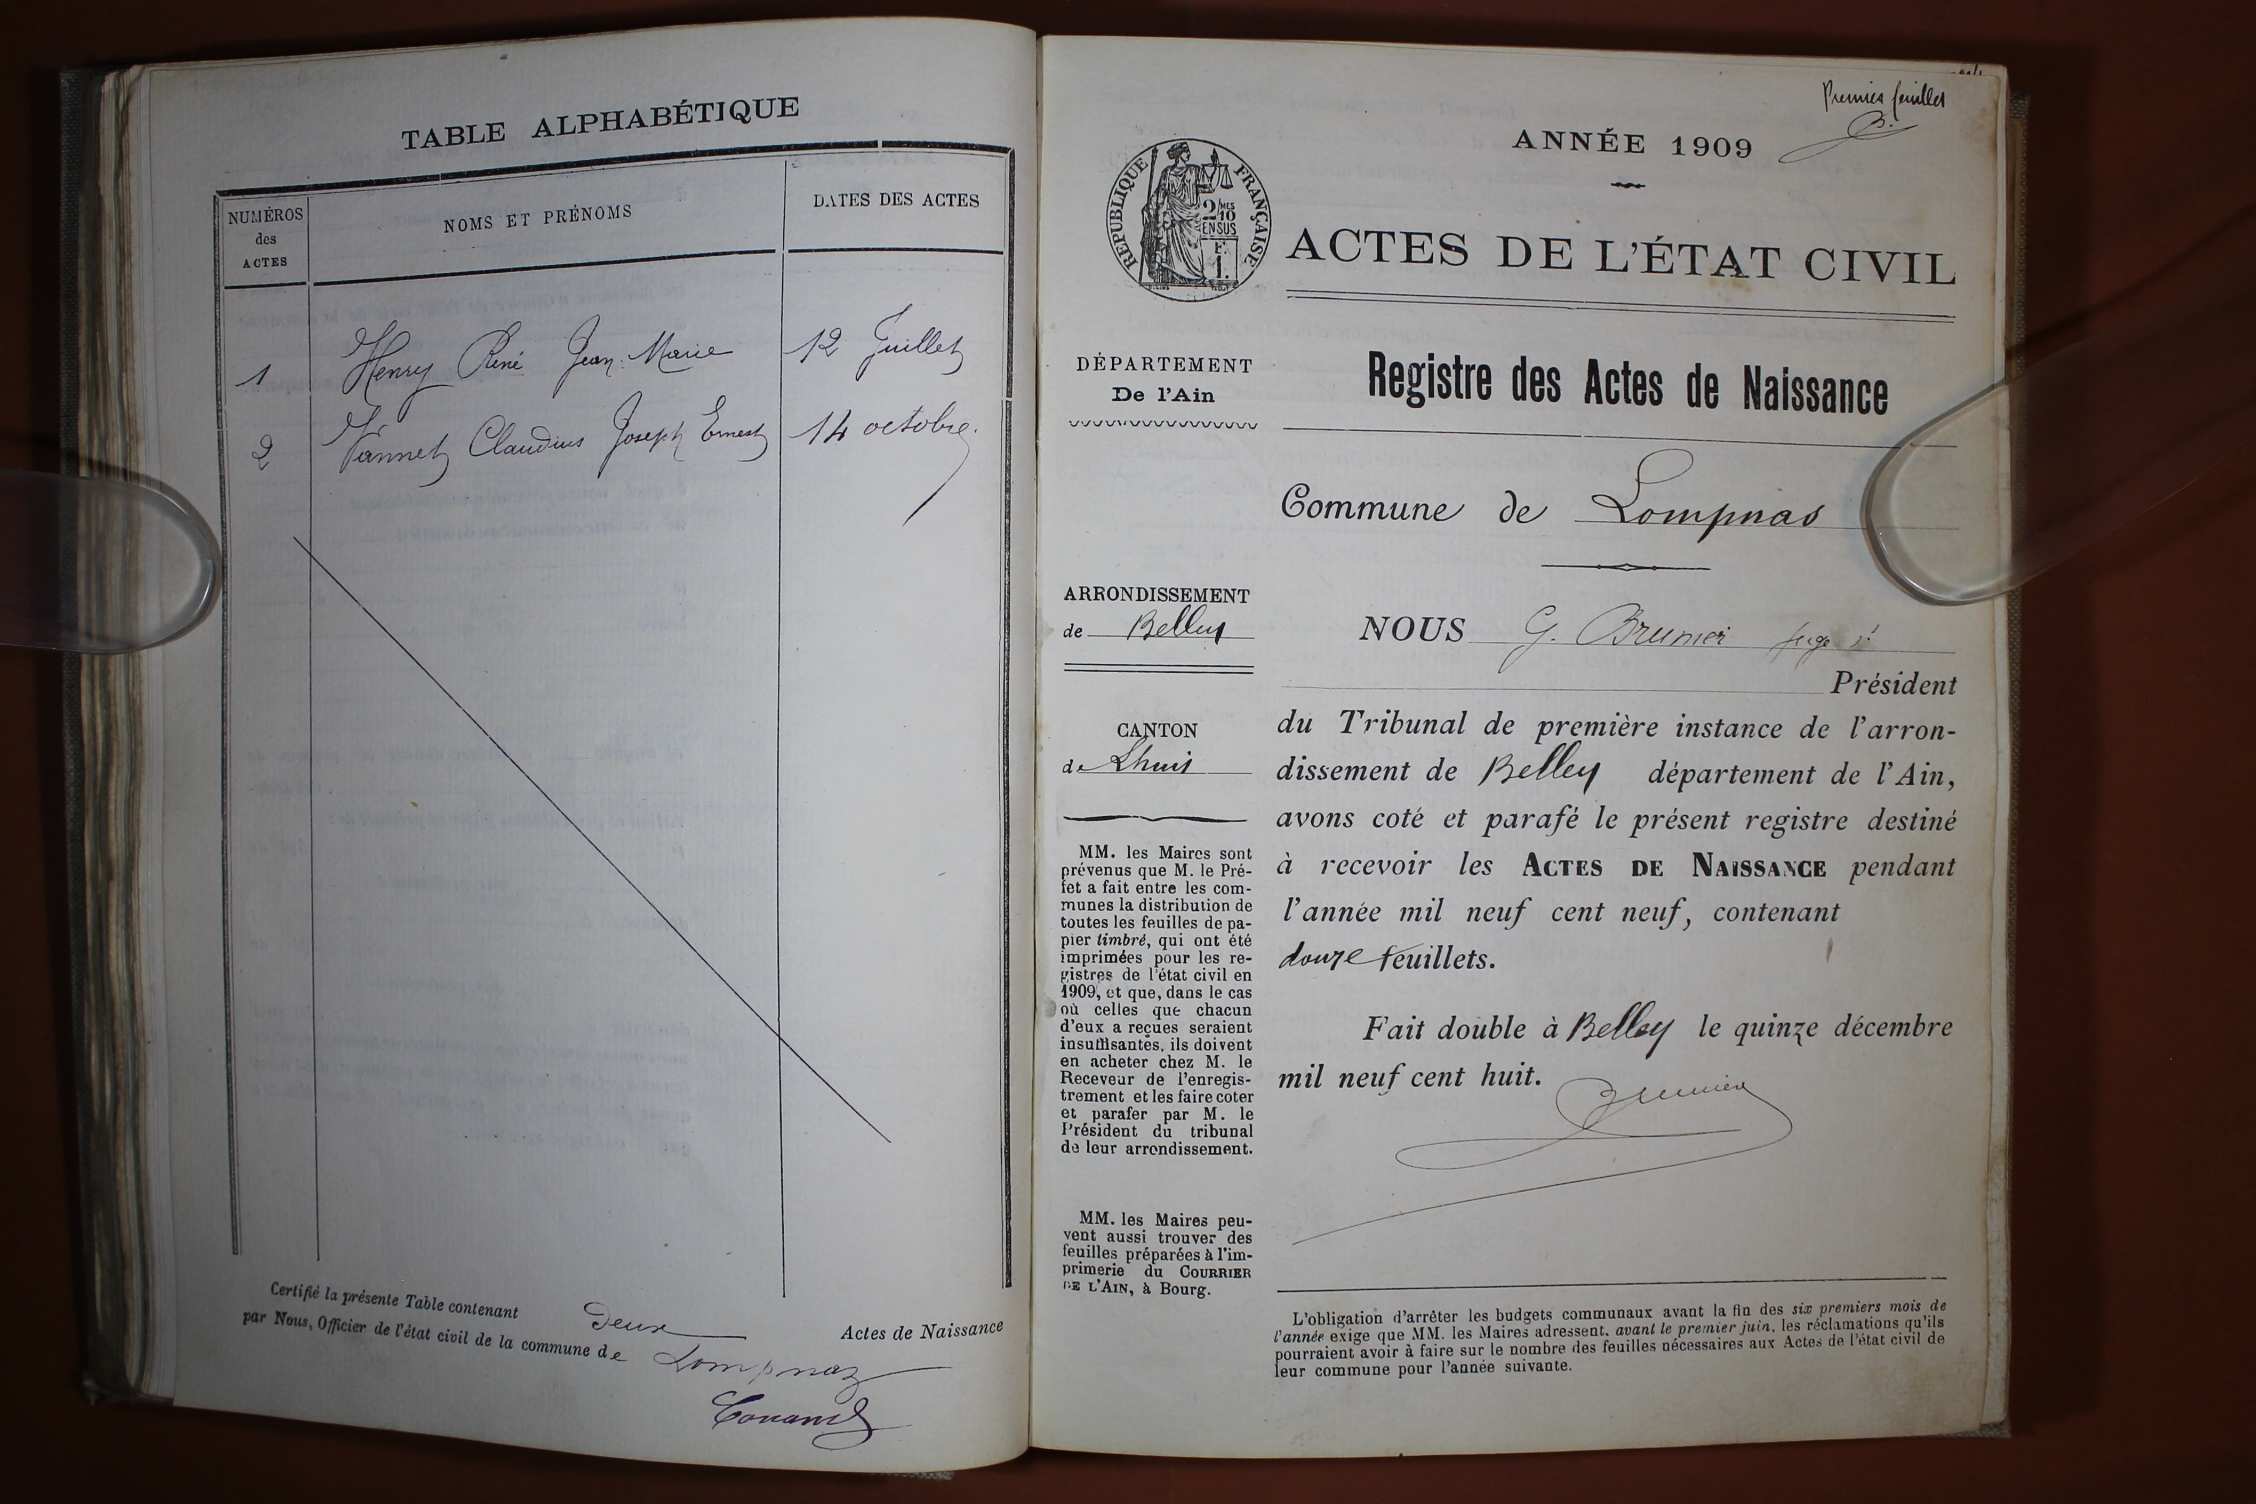 TABLE ALPHABÉTIQUE
NUMÉROS
des
ACTES
NOMS ET PRÉNOMS
DATES DES ACTES
1 Henry René Jean-Marie 12 Juillet
2 Vannet Claudius Joseph Ernest 14 octobre.
Certifié la présente Table contenant deux Actes de Naissance
par Nous, Officier de l'état civil de la commune de Lompnaz
Premier feuillet
B.
ANNÉE 1909
RÉPUBLIQUE FRANÇAISE
2/10 MES
EN SUS
1 F.
ACTES DE L'ÉTAT CIVIL
DÉPARTEMENT
De l'Ain
Registre des Actes de Naissance
Commune de Lompnas
ARRONDISSEMENT
de Belley
CANTON
de Lhuis
MM. les Maires sont
prévenus que M. le Pré-
fet a fait entre les com-
munes la distribution de
toutes les feuilles de pa-
pier timbré, qui ont été
imprimées pour les re-
gistres de l'état civil en
1909, et que, dans le cas
où celles que chacun
d'eux a reçues seraient
insuffisantes, ils doivent
en acheter chez M. le
Receveur de l'enregis-
trement et les faire coter
et parafer par M. le
Président du tribunal
de leur arrondissement.
MM. les Maires peu-
vent aussi trouver des
feuilles préparées à l'im-
primerie du COURRIER
DE L'AIN, à Bourg.
NOUS G. Brunier juge
Président
du Tribunal de première instance de l'arron-
dissement de Belley département de l'Ain,
avons coté et parafé le présent registre destiné
à recevoir les ACTES DE NAISSANCE pendant
l'année mil neuf cent neuf, contenant
douze feuillets.
Fait double à Belley le quinze décembre
mil neuf cent huit.
Brunier
L'obligation d'arrêter les budgets communaux avant la fin des six premiers mois de
l'année exige que MM. les Maires adressent, avant le premier juin, les réclamations qu'ils
pourraient avoir à faire sur le nombre des feuilles nécessaires aux Actes de l'état civil de
leur commune pour l'année suivante.